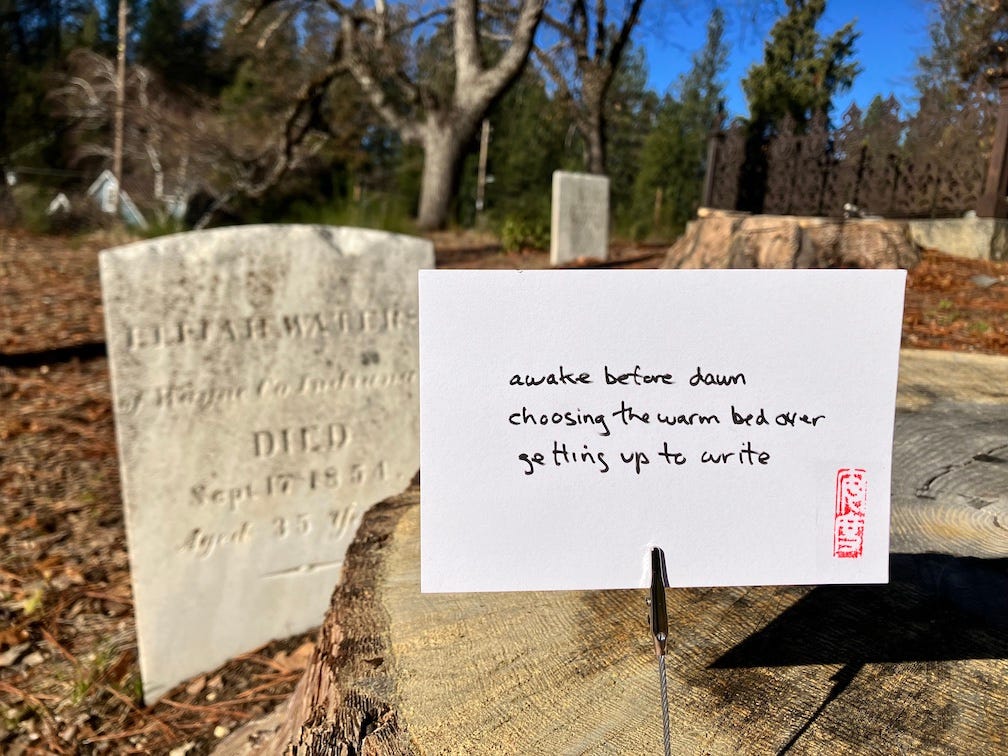 ELIJAH WATERS
of Wayne Co. Indiana
DIED
Sept. 17 1854
Aged 35
awake before dawn
choosing the warm bed over
getting up to write